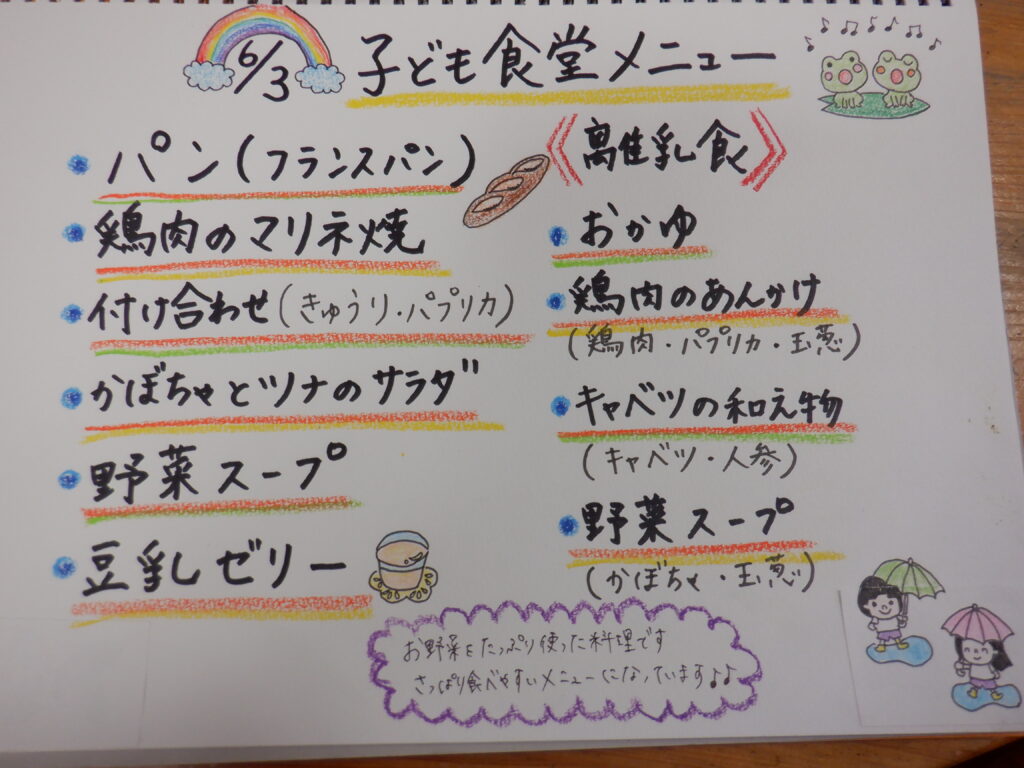 6/3 子ども食堂メニュー
パン(フランスパン)
鶏肉のマリネ焼
付け合わせ(きゅうり・パプリカ)
かぼちゃとツナのサラダ
野菜スープ
豆乳ゼリー
《離乳食》
おかゆ
鶏肉のあんかけ
(鶏肉・パプリカ・玉葱)
キャベツの和え物
(キャベツ・人参)
野菜スープ
(かぼちゃ・玉葱)
お野菜をたっぷり使った料理です
さっぱり食べやすいメニューになっています♪♪